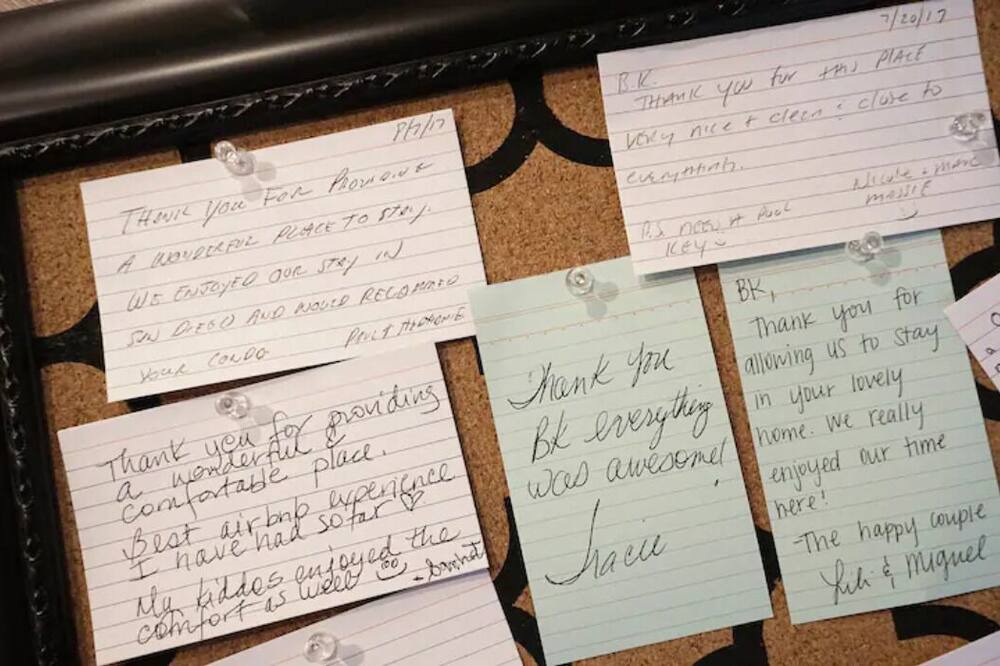 8/7/17
THANK YOU FOR PROVIDING
A WONDERFUL PLACE TO STAY.
WE ENJOYED OUR STAY IN
SAN DIEGO AND WOULD RECOMMEND
YOUR CONDO
7/20/17
B.K.
THANK YOU for this PLACE
VERY nice + clean & close to
everything.
Nicole + Marc
MASSIE
P.S. NEED A POOL
KEY
Thank you for providing
a wonderful &
comfortable place.
Best airbnb experience
I have had so far ♡
My kiddos enjoyed the
comfort as well ☺
Thank you
BK everything
was awesome!
Tracie
BK,
Thank you for
allowing us to stay
in your lovely
home. We really
enjoyed our time
here!
-The happy couple
Lili & Miguel